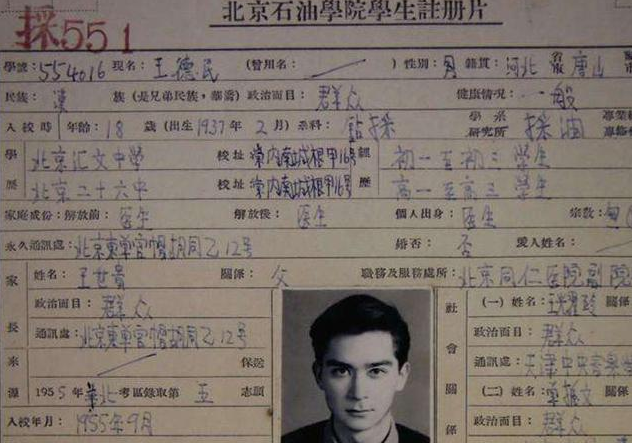 北京石油學院學生註册片
採551
學號:554016 現名:王德民 (曾用名: ) 性別:男 籍貫:河北 省 唐山
民族:漢 族(是兄弟民族,華僑)政治面目:群众 健康情況:一般
入校時年齡:18歲(出生1937年2月)系科:鈷採 學系 研究所 採油 專業
學 北京汇文中学 校址 崇内南城根甲16号 初一至初三 学生
歷 北京二十六中 校址 崇内南城根甲16号 歷 高一至高三 学生
家庭成份:解放前:医生 解放後:医生 個人出身:医生 宗教:
永久通訊處:北京東單官帽胡同乙12号 婚否:否 愛人姓名:
家 姓名:王世貴 關係:父 職務及服務處所:北京同仁医院副院
政治面目:群众 社 (一)姓名: 關係
長 通訊處:北京東單官帽胡同乙12号 會 政治面目:群众
來 保送 關 通訊處:天津中央
源 1955年华北考區錄取第五志願 係 (二)姓名: 關係
入校年月:1955年9月 政治面目:群众